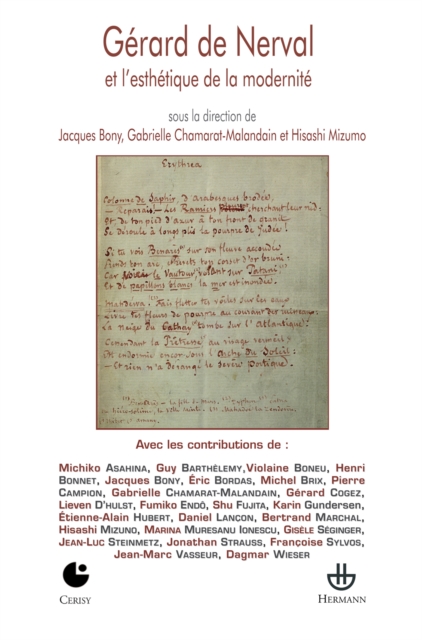 Gérard de Nerval
et l'esthétique de la modernité
sous la direction de
Jacques Bony, Gabrielle Chamarat-Malandain et Hisashi Mizumo
Erythrea
Colonne de Saphir, d'arabesques brodée,
– Reparais! – Les Ramiers cherchant leur nid:
Et de ton pied d'azur à ton front de granit
Se déroule à longs plis la pourpre de Judée!
Si tu vois Bénarès sur son fleuve accoudée
Prends ton arc et revets ton corset d'or bruni:
Car voici le Vautour, volant sur Patani
Et de papillons blancs la mer est inondée.
Mahdéwa! Fais flotter tes voiles sur les eaux
Livre tes fleurs de pourpre au courant des ruisseaux:
La neige du Cathay tombe sur l'Atlantique:
Cependant la Prêtresse au visage vermeil
Est endormie encor sous l'Arche du Soleil:
– Et rien n'a dérangé le sévère portique.
Avec les contributions de :
Michiko Asahina, Guy Barthélemy, Violaine Boneu, Henri
Bonnet, Jacques Bony, Éric Bordas, Michel Brix, Pierre
Campion, Gabrielle Chamarat-Malandain, Gérard Cogez,
Lieven D'hulst, Fumiko Endô, Shu Fujita, Karin Gundersen,
Étienne-Alain Hubert, Daniel Lançon, Bertrand Marchal,
Hisashi Mizuno, Marina Muresanu Ionescu, Gisèle Séginger,
Jean-Luc Steinmetz, Jonathan Strauss, Françoise Sylvos,
Jean-Marc Vasseur, Dagmar Wieser
Cerisy
Hermann